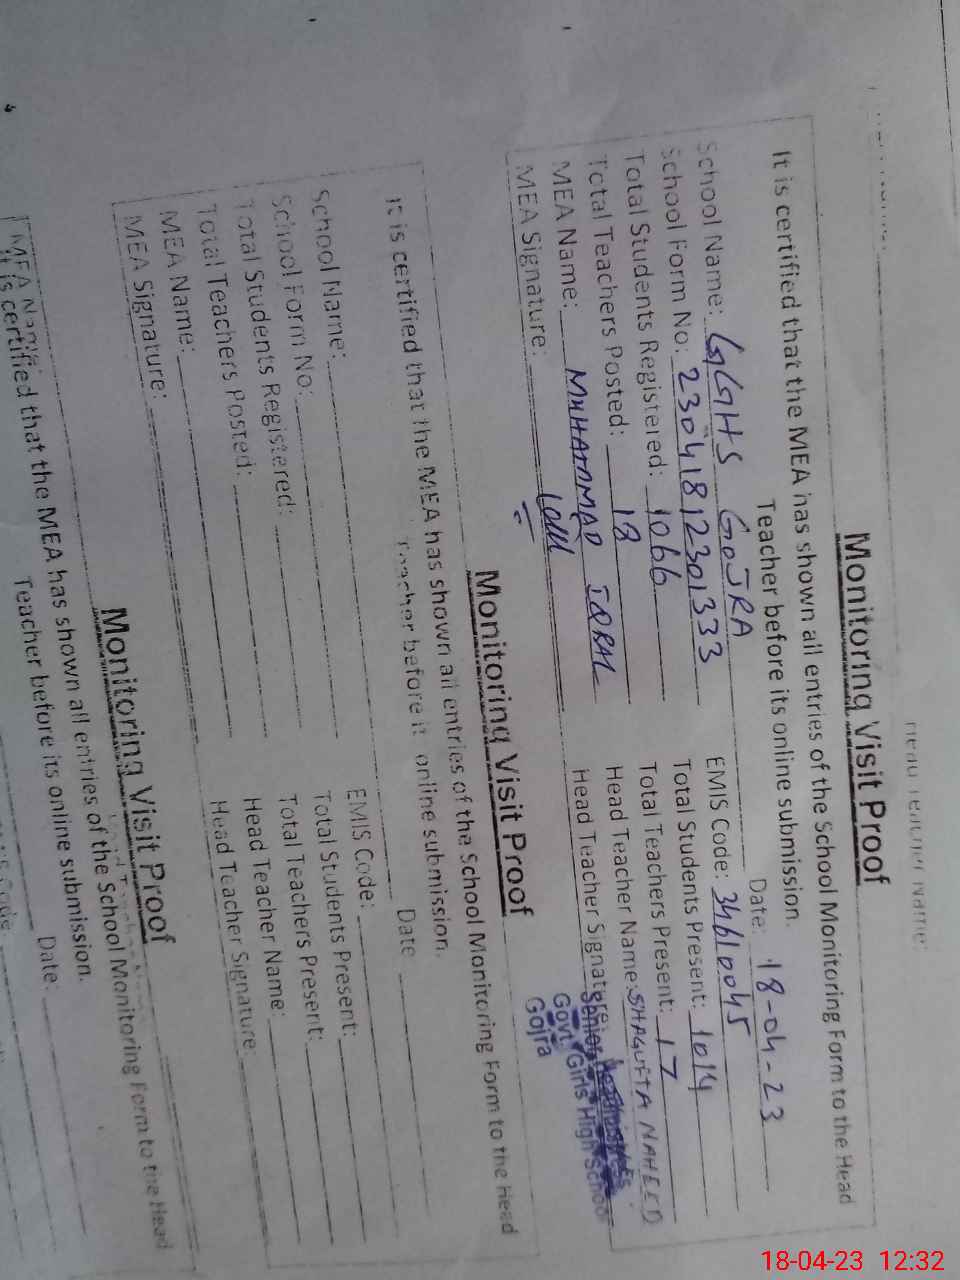 Head Teacher Name:
Monitoring Visit Proof
It is certified that the MEA has shown all entries of the School Monitoring Form to the Head
Teacher before its online submission.
Date: 18-04-23
School Name: GGHS GOJRA EMIS Code: 34610045
School Form No: 23041812301333 Total Students Present: 1014
Total Students Registered: 1066 Total Teachers Present: 17
Total Teachers Posted: 18 Head Teacher Name: SHAGUFTA NAHEED
MEA Name: MUHAMMAD IQBAL Head Teacher Signature:
MEA Signature:
Senior Headmistress
Govt. Girls High School
Gojra
Monitoring Visit Proof
It is certified that the MEA has shown all entries of the School Monitoring Form to the Head
Teacher before it online submission.
Date
School Name: EMIS Code:
School Form No: Total Students Present:
Total Students Registered: Total Teachers Present:
Total Teachers Posted: Head Teacher Name:
MEA Name: Head Teacher Signature:
MEA Signature:
Monitoring Visit Proof
MEA Name:
It is certified that the MEA has shown all entries of the School Monitoring Form to the Head
Teacher before its online submission.
Date:
18-04-23 12:32